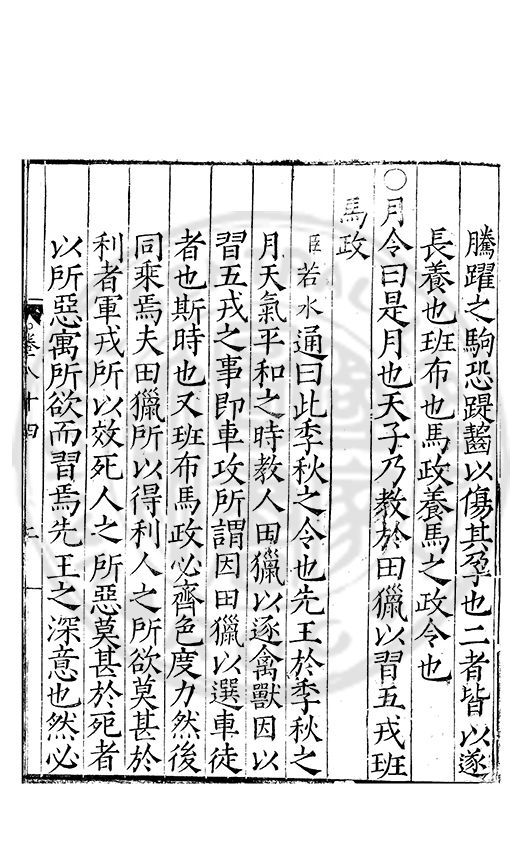 騰躍之駒恐踶齧以傷其孕也二者皆以遂
長養也班布也馬政養馬之政令也
○月令曰是月也天子乃教於田獵以習五戎班
馬政
臣若水通曰此季秋之令也先王於季秋之
月天氣平和之時教人田獵以逐禽獸因以
習五戎之事即車攻所謂因田獵以選車徒
者也斯時也又班布馬政必齊色度力然後
同乘焉夫田獵所以得利人之所欲莫甚於
利者軍戎所以效死人之所惡莫甚於死者
以所惡寓所欲而習焉先王之深意也然必
卷八十四